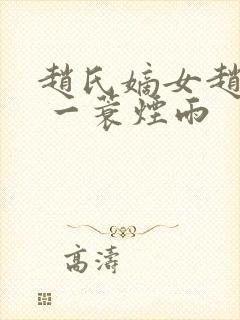 趙氏嫡女趙
一蓑煙雨
高濤